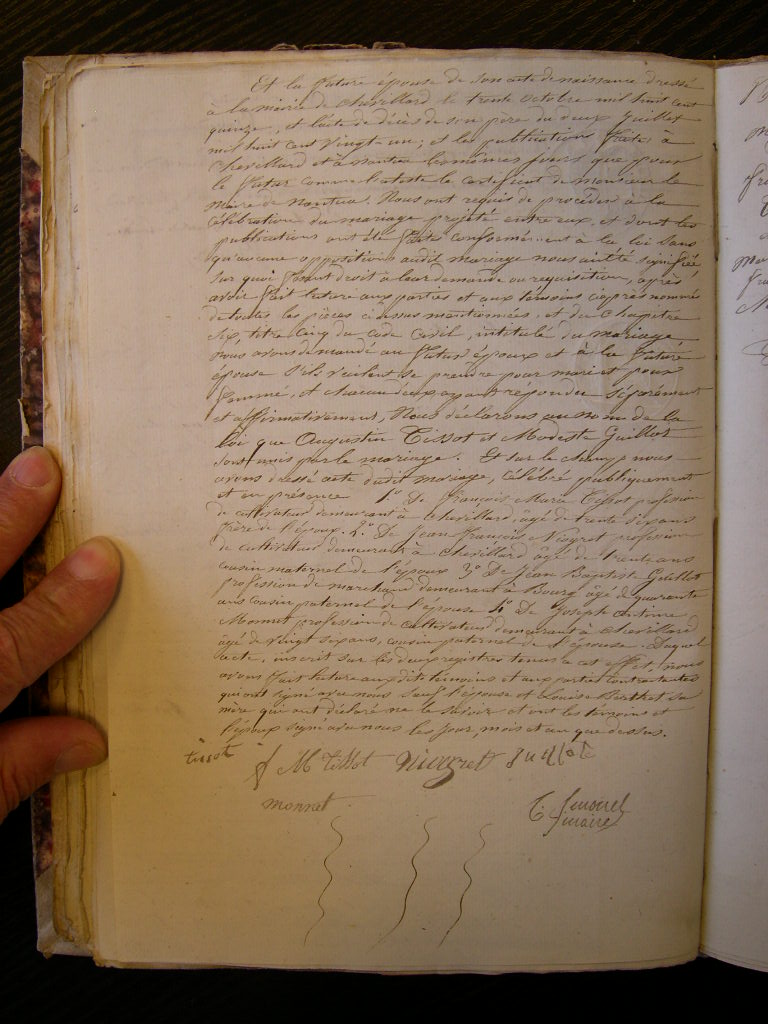 Et la future épouse de son acte de naissance dressé
à la mairie de chevillard le trente octobre mil huit cent
quinze, et l'acte de décès de son père du deux Juillet
mil huit cent vingt-un; et les publications faites à
Chevillard et à nantua les mêmes jours que pour
le futur comme l'atteste le certificat de monsieur le
maire de nantua. Nous ont requis de procéder à la
célébration du mariage projeté entre eux, et dont les
publications ont été faites conformément à la loi sans
qu'aucune opposition audit mariage nous ait été signifiée
sur quoi faisant droit à leur demande ou requisition, après
avoir fait lecture aux parties et aux témoins ci après nommés
de toutes les pièces ci dessus mentionnées, et du chapitre
six, titre cinq du code civil, intitulé du mariage,
nous avons demandé au futur époux et à la future
épouse s'ils veulent se prendre pour mari et pour
femme, et chacun d'eux ayant répondu séparément
et affirmativement, Nous déclarons au nom de la
loi que Augustin Tissot et Modeste Guillot
sont unis par le mariage. Et sur le champ nous
avons dressé acte dudit mariage, célébré publiquement
et en présence 1o De François Marie Tissot profession
de cultivateur demeurant à chevillard, âgé de trente six ans
frère de l'époux. 2o De Jean françois profession
de cultivateur demeurant à Chevillard âgé de trente ans
cousin maternel de l'époux 3o De Jean Baptiste Guillot
profession de marchand demeurant à Bourg âgé de quarante
ans cousin paternel de l'épouse 4o De Joseph
Monnet profession de cultivateur demeurant à Chevillard
âgé de vingt six ans, cousin paternel de l'épouse. Duquel
acte, inscrit sur les deux registres tenus à cet effet, nous
avons fait lecture aux dits témoins et aux parties contractantes
qui ont signé avec nous sauf l'épouse et Louise Berthet sa
mère qui ont déclaré ne le savoir et ont les témoins et
l'époux signé avec nous les jour, mois et an que dessus.
tissot f M tissot guillot
monnet
maire